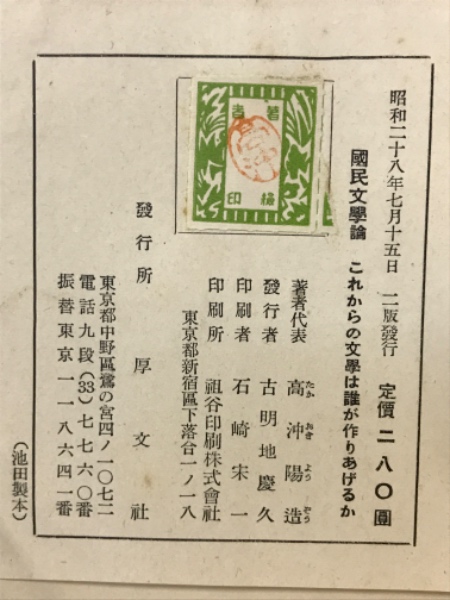 昭和二十八年七月十五日　二版發行　定價二八〇圓
國民文學論　これからの文學は誰が作りあげるか
著者代表　高沖陽造
たか　おき　よう　ぞう
發行者　古明地慶久
印刷者　石崎宋一
印刷所　祖谷印刷株式會社
東京都新宿區下落合一ノ一八
著者
檢印
發行所　厚文社
東京都中野區鷺の宮四ノ一〇七二
電話九段(33)七七六〇番
振替東京一一八六四一番
(池田製本)